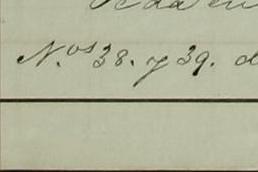 N.os 38. y 39. d